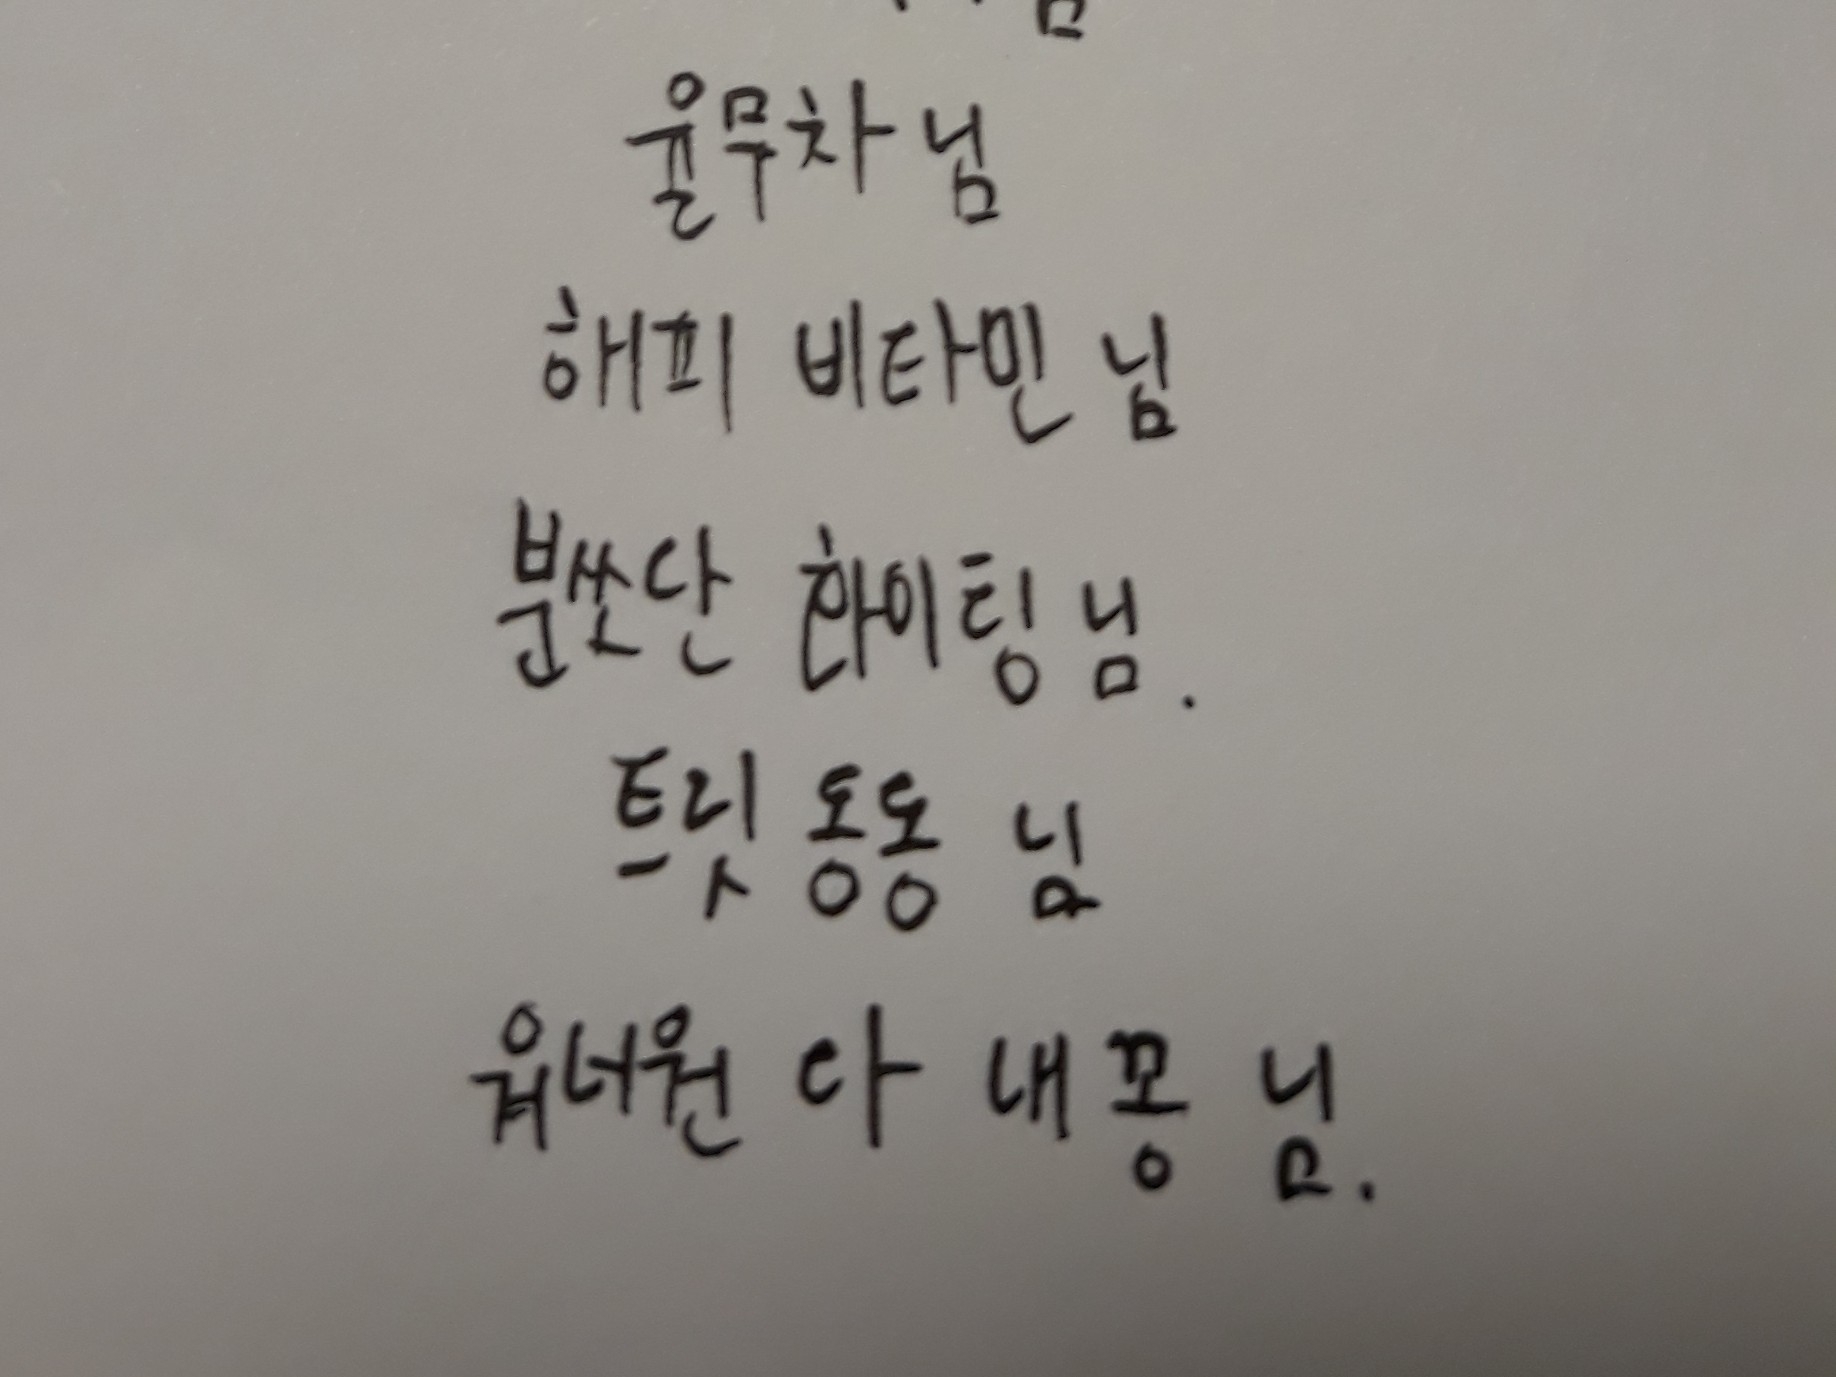 율무차님
해피 비타민 님
분쏘단 화이팅 님.
트릿 동동 님
워너원 다 내꽁 님.